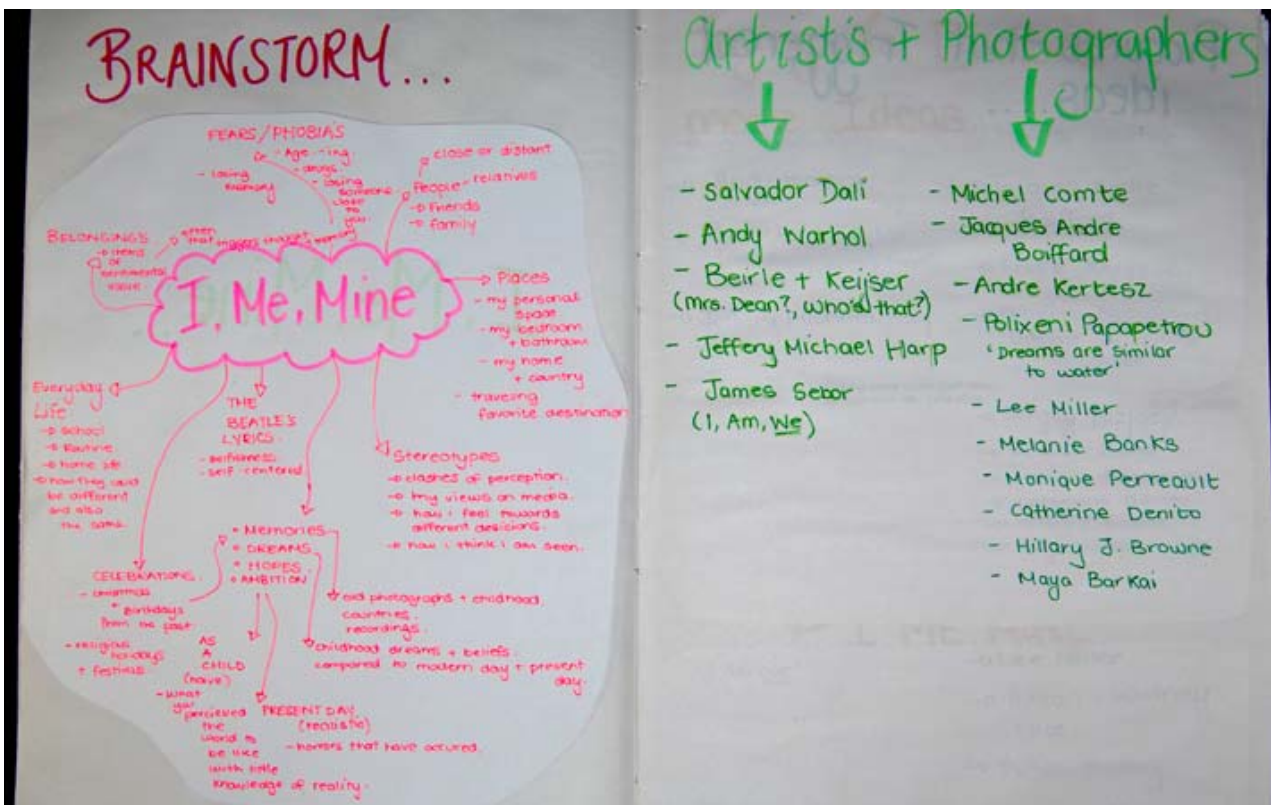 BRAINSTORM...
FEARS/PHOBIA'S
- Age-ing
- drugs.
- losing
memory
- losing
someone
close
to
you.
close or distant
relatives
People
→ Friends
→ family
BELONGING'S
→ items
of
sentimental
value
often
that triggers thought
memory
I, Me, Mine
Places
- my personal
space
- my bedroom
+ bathroom
- my home
+ country
- traveling
favorite destination
Everyday
Life
→ school
→ Routine
→ home life
→ how they could
be different
and also
the same.
THE
BEATLE'S
LYRICS.
- selfishness
- self centered
Stereotypes
→ clashes of perception.
→ my views on media.
→ how i feel towards
different desicions.
→ how i think i am seen.
• Memories
• DREAMS
• HOPES
• AMBITION
CELEBRATIONS.
- christmas
• Birthdays
from the past
- religious
holidays
+ festivals
old photographs + childhood
countries.
recordings.
childhood dreams + beliefs.
compared to modern day + present
day.
AS
A
CHILD
(naive)
- what
you
percieved
the
world to
be like
with little
knowledge of reality.
PRESENT DAY
(realistic)
- horrors that have occured.
Artist's + Photographers
- Salvador Dali
- Andy Warhol
- Beirle + Keijser
(mrs. Dean?, who's that?)
- Jeffery Michael Harp
- James Sebor
(I, Am, We)
- Michel Comte
- Jacques Andre
Boiffard
- Andre Kertesz
- Polixeni Papapetrou
'Dreams are similar
to water'
- Lee Miller
- Melanie Banks
- Monique Perreault
- Catherine Denito
- Hillary J. Browne
- Maya Barkai